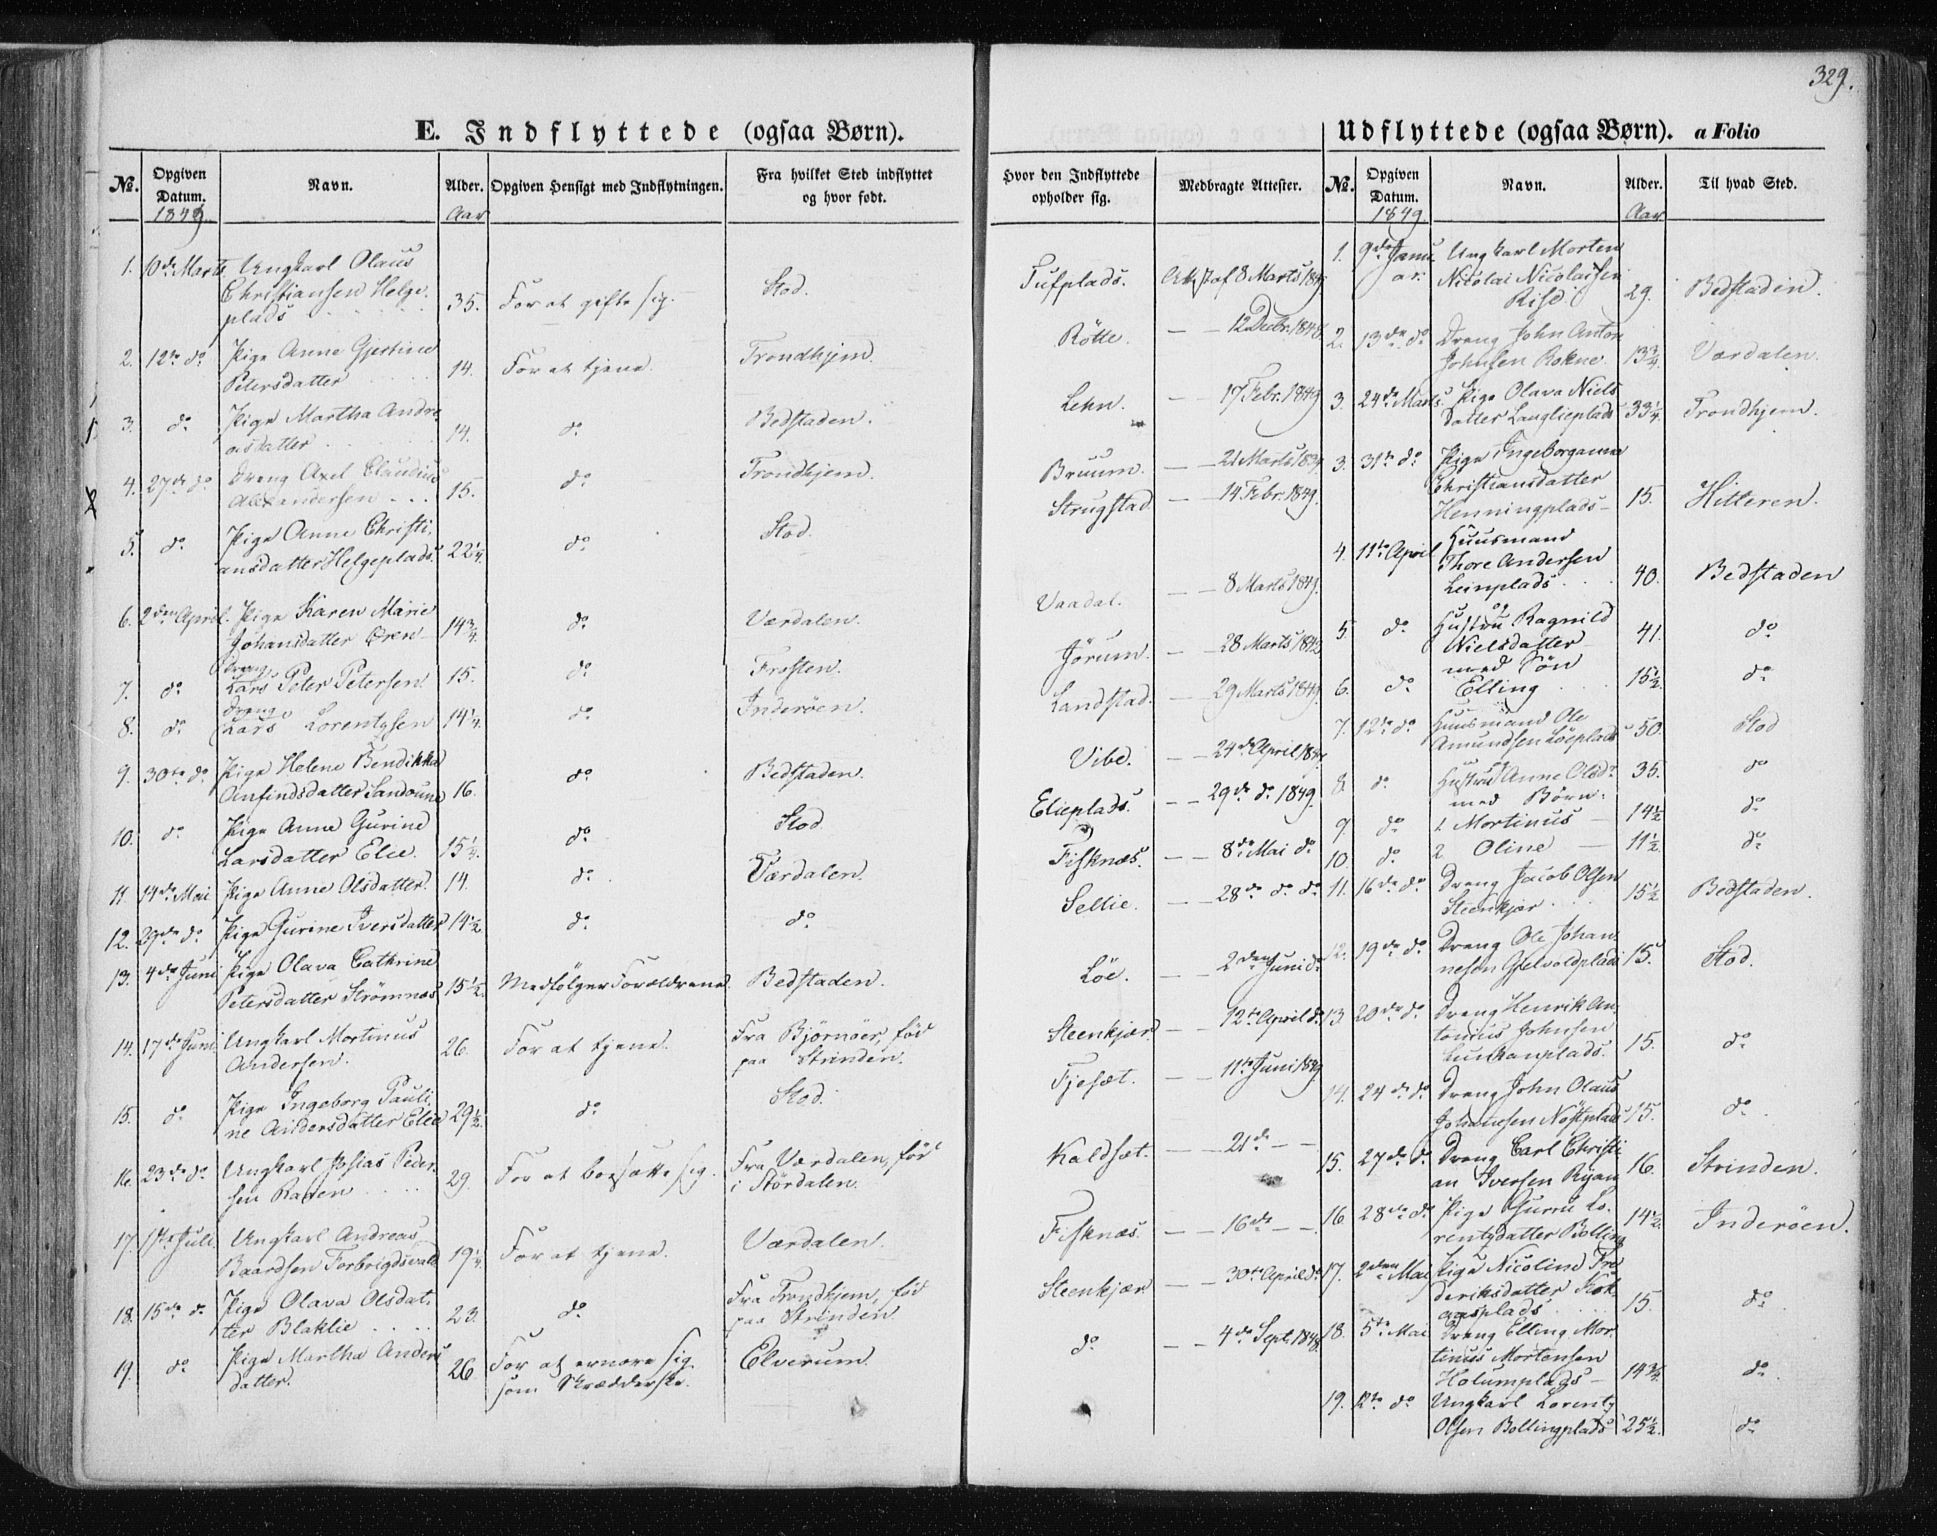 329.
E. Indflyttede (ogsaa Børn).
No.
Opgiven Datum.
Navn.
Alder.
Opgiven Hensigt med Indflytningen.
Fra hvilket Sted indflyttet og hvor født.
Hvor den Indflyttede opholder sig.
Medbragte Attester.
1849.
Aar
1. 10de Marts Ungkarl Olaus
Christiansen Helge-
plads 35. For at gifte sig. Stod. Tufplads. Attest af 8 Marts 1849
2. 12te do Pige Anne Gjertine
Petersdatter 14. For at tjene. Trondhjem. Rötte. — — 12 Decbr. 1848.
3. do Pige Martha Andre
asdatter 14. do Bedstaden. Lehn. — — 17 Febr. 1849
4. 27de do Dreng Axel Claudius
Alexandersen 15. do Trondhjem. Bruum. — — 21 Marts 1839.
5. do Pige Anne Christi-
ansdatter Helgeplads. 22¼. do Stod. Strugstad. — — 14 Febr. 1849.
6. 2den April. Pige Karen Marie
Johansdatter Ören 14¾. do Værdalen. Vaadal. — — 8 Marts 1849.
7. do Dreng
Lars Peter Petersen. 15. do Frosten. Jörum. — — 28 Marts 1849
8. do Dreng
Lars Lorentzsen 14¼. do Inderöen. Landstad. — — 29 Marts 1849.
9. 30te do Pige Helene Bendikka
Anfindsdatter Sandoune 16. do Bedstaden. Vibe. — — 24de April 1849
10. do Pige Anne Gurine
Larsdatter Elie. 15¼. do Stod. Elieplads. — — 29de do 1849.
11. 14de Mai Pige Anne Olsdatter. 14. do Værdalen. Fisknæs. — — 8de Mai do
12. 29de do Pige Gurine Iversdatter 14½ do do Sellie. — — 28de do do
13. 4de Juni Pige Olava Cathrine
Petersdatter Strömnæs 15½. Medfölger Forældrene. Bedstaden. Löe. — — 2den Juni do
14. 17de Juni Ungkarl Mortinus
Andersen. 26. For at tjene. Fra Björnöer, föd
paa Strinden. Steenkjær. — — 12te April do
15. do Pige Ingeborg Pauli-
ne Andersdatter Elie 29½. do Stod. Fjesæt. — — 11te Juni 1849
16. 23de do Ungkarl Josias Peder-
sen Raven 29. For at bosætte sig. Fra Værdalen, föd
i Stördalen. Kaldsæt. — — 21de — —
17. 1ste Juli. Ungkarl Andreas
Baardsen Forbrigdsvald 19¼. For at tjene. Værdalen. Fisknæs. — — 16de — —
18. 15de do Pige Olava Olsdat-
ter Blaklie 23. do Fra Trondhjem, föd
paa Strinden. Steenkjær — — 30te April do
19. do Pige Martha Anders
datter. 26. For at ernære sig
som Skrædderske. Elverum. do — — 4de Sept. 1848.
Udflyttede (ogsaa Børn). a Folio
No.
Opgiven Datum.
Navn.
Alder.
Til hvad Sted.
1849.
Aar
1. 9de Janu
ar. Ungkarl Morten
Nicolai Nicolaisen
Rise 29. Bedstaden.
2. 13de do Dreng John Anton
Johnsen Rokne. 13¾. Værdalen.
3. 24de Marts. Pige Olava Niels
datter Langlieplads 33¼. Trondhjem.
3. 31te do Pige Ingeborganna
Christiansdatter
Henningplads 15. Hitteren.
4. 11te April Huusmand
Thore Andersen
Leinplads 40. Bedstaden
5. do og
Hustru Ragnild
Nielsdatter 41. do
6. do med Sön
Elling 15½. do
7. 12te do Huusmand Ole
Amundsen Löeplads 50. Stod
8. do Hustru Anne Olsdr. 35. do
med Börn:
9 do 1. Mortinus 14½ do
10. do 2 Oline 11½. do
11. 16de do Dreng Jacob Olsen
Steenkjær 15½ Bedstaden.
12. 19de do Dreng Ole Johan-
nesen Gjelvoldplads 15. Stod.
13. 20de do Dreng Henrik An-
tonius Johnsen
Lunhanplads. 15. do
14. 24de do Dreng John Olaus
Johannsen Nöstplads 15. do
15. 27de do Dreng Carl Christi
an Iversen Ryan 16. Strinden.
16 28de do Pige Gurru Lo-
rentzdatter Bolling 14½. Inderöen.
17. 2den Mai Pige Nicoline Fre
deriksdatter
aasplads 15. do
18. 5te Mai Dreng Elling Mor-
tinus Mortensen
Holumplads 14¾. do
19. 12te do Ungkarl Lorentz
Olsen Bollingplads 25½. do